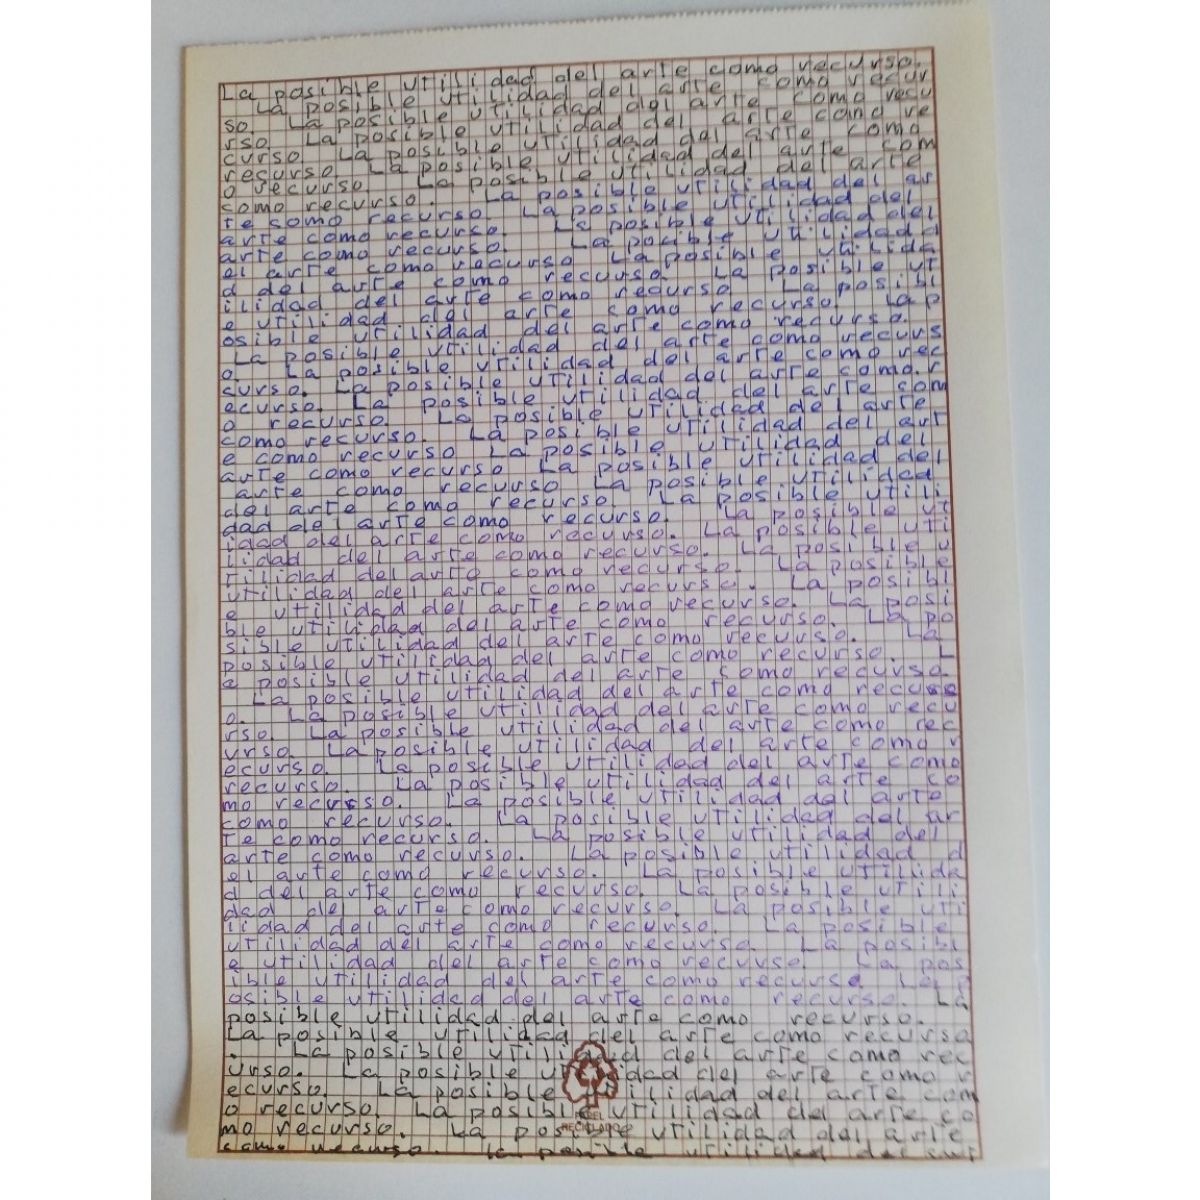 La posible utilidad del arte como recurso.
La posible utilidad del arte como recur
so. La posible utilidad del arte como recu
rso. La posible utilidad del arte como re
curso. La posible utilidad del arte como
recurso. La posible utilidad del arte com
o recurso. La posible utilidad del arte
como recurso. La posible utilidad del ar
te como recurso. La posible utilidad del
arte como recurso. La posible utilidad del
arte como recurso. La posible utilidad d
el arte como recurso. La posible utilida
d del arte como recurso. La posible ut
ilidad del arte como recurso La posibl
e utilidad del arte como recurso. La p
osible utilidad del arte como recurso.
La posible utilidad del arte como recurs
o. La posible utilidad del arte como rec
curso. La posible utilidad del arte como.r
ecurso. La posible utilidad del arte com
o recurso. La posible utilidad del arte
como recurso. La posible utilidad del art
e como recurso La posible utilidad del
arte como recurso La posible utilidad del
arte como recurso La posible utilidad
del arte como recurso. La posible utili
dad del arte como recurso. La posible ut
idad del arte como recurso. La posible uti
lidad del arte como recurso. La posible u
tilidad del arte como recurso. La posible
utilidad del arte como recurso. La posibl
e utilidad del arte como recurso. La posi
ble utilidad del arte como recurso. La po
sible utilidad del arte como recurso. La
posible utilidad del arte como recurso. L
a posible utilidad del arte como recurso
La posible utilidad del arte como recurs
o. La posible utilidad del arte como recu
rso. La posible utilidad del arte como rec
urso. La posible utilidad del arte como r
ecurso. La posible utilidad del arte como
recurso. La posible utilidad del arte co
mo recurso. La posible utilidad del arte
como recurso. La posible utilidad del ar
te como recurso. La posible utilidad del
arte como recurso. La posible utilidad d
el arte como recurso. La posible utilida
d del arte como recurso. La posible utili
dad del arte como recurso. La posible uti
lidad del arte como recurso. La posible
utilidad del arte como recurso. La posibl
e utilidad del arte como recurso. La pos
ible utilidad del arte como recurso. La p
osible utilidad del arte como recurso. La
posible utilidad del arte como recurso.
La posible utilidad del arte como recurso
. La posible utilidad del arte como rec
urso. La posible utilidad del arte como r
ecurso. La posible utilidad del arte com
o recurso. La posible utilidad del arte co
mo recurso. La posible utilidad del arte
como recurso. La posible utilidad del art
PAPEL
RECICLADO